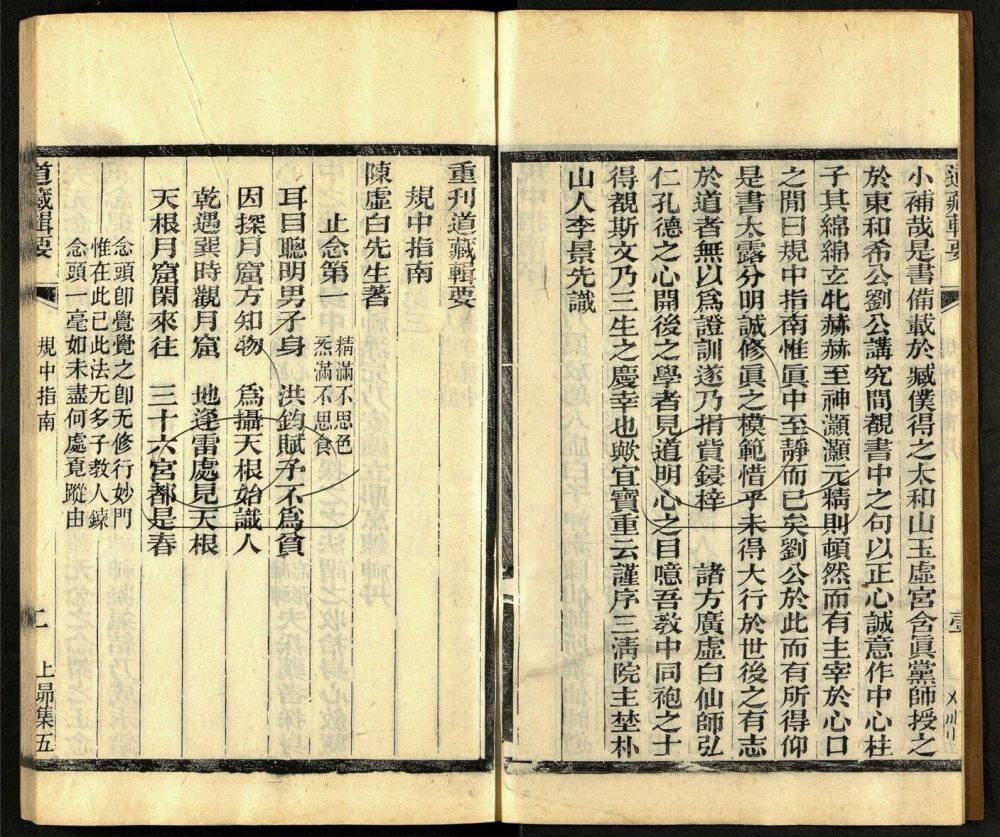 道藏輯要
小補哉是書備載於藏僕得之太和山玉虛宮含眞黨師授之
於東和希公劉公講究間覩書中之句以正心誠意作中心柱
子其綿綿玄牝赫赫至神灝灝元精則頓然而有主宰於心口
之間曰規中指南惟眞中至靜而已矣劉公於此而有所得仰
是書太露分明誠修眞之模範惜乎未得大行於世後之有志
於道者無以爲證訓遂乃捐貲鋟梓 諸方廣虛白仙師弘
仁孔德之心開後之學者見道明心之目噫吾教中同袍之士
得覩斯文乃三生之慶幸也歟宜寶重云謹序三淸院主埜朴
山人李景先識
重刊道藏輯要
規中指南
陳虛白先生著
止念第一 精滿不思色
炁滿不思食
耳目聰明男子身 洪鈞賦予不爲貧
因探月窟方知物 爲攝天根始識人
乾遇巽時觀月窟 地逢雷處見天根
天根月窟閑來往 三十六宮都是春
念頭卽覺覺之卽无修行妙門
惟在此已此法无多子教人鍊
念頭一毫如未盡何處覓蹤由
道藏輯要
規中指南
二
上昴集五